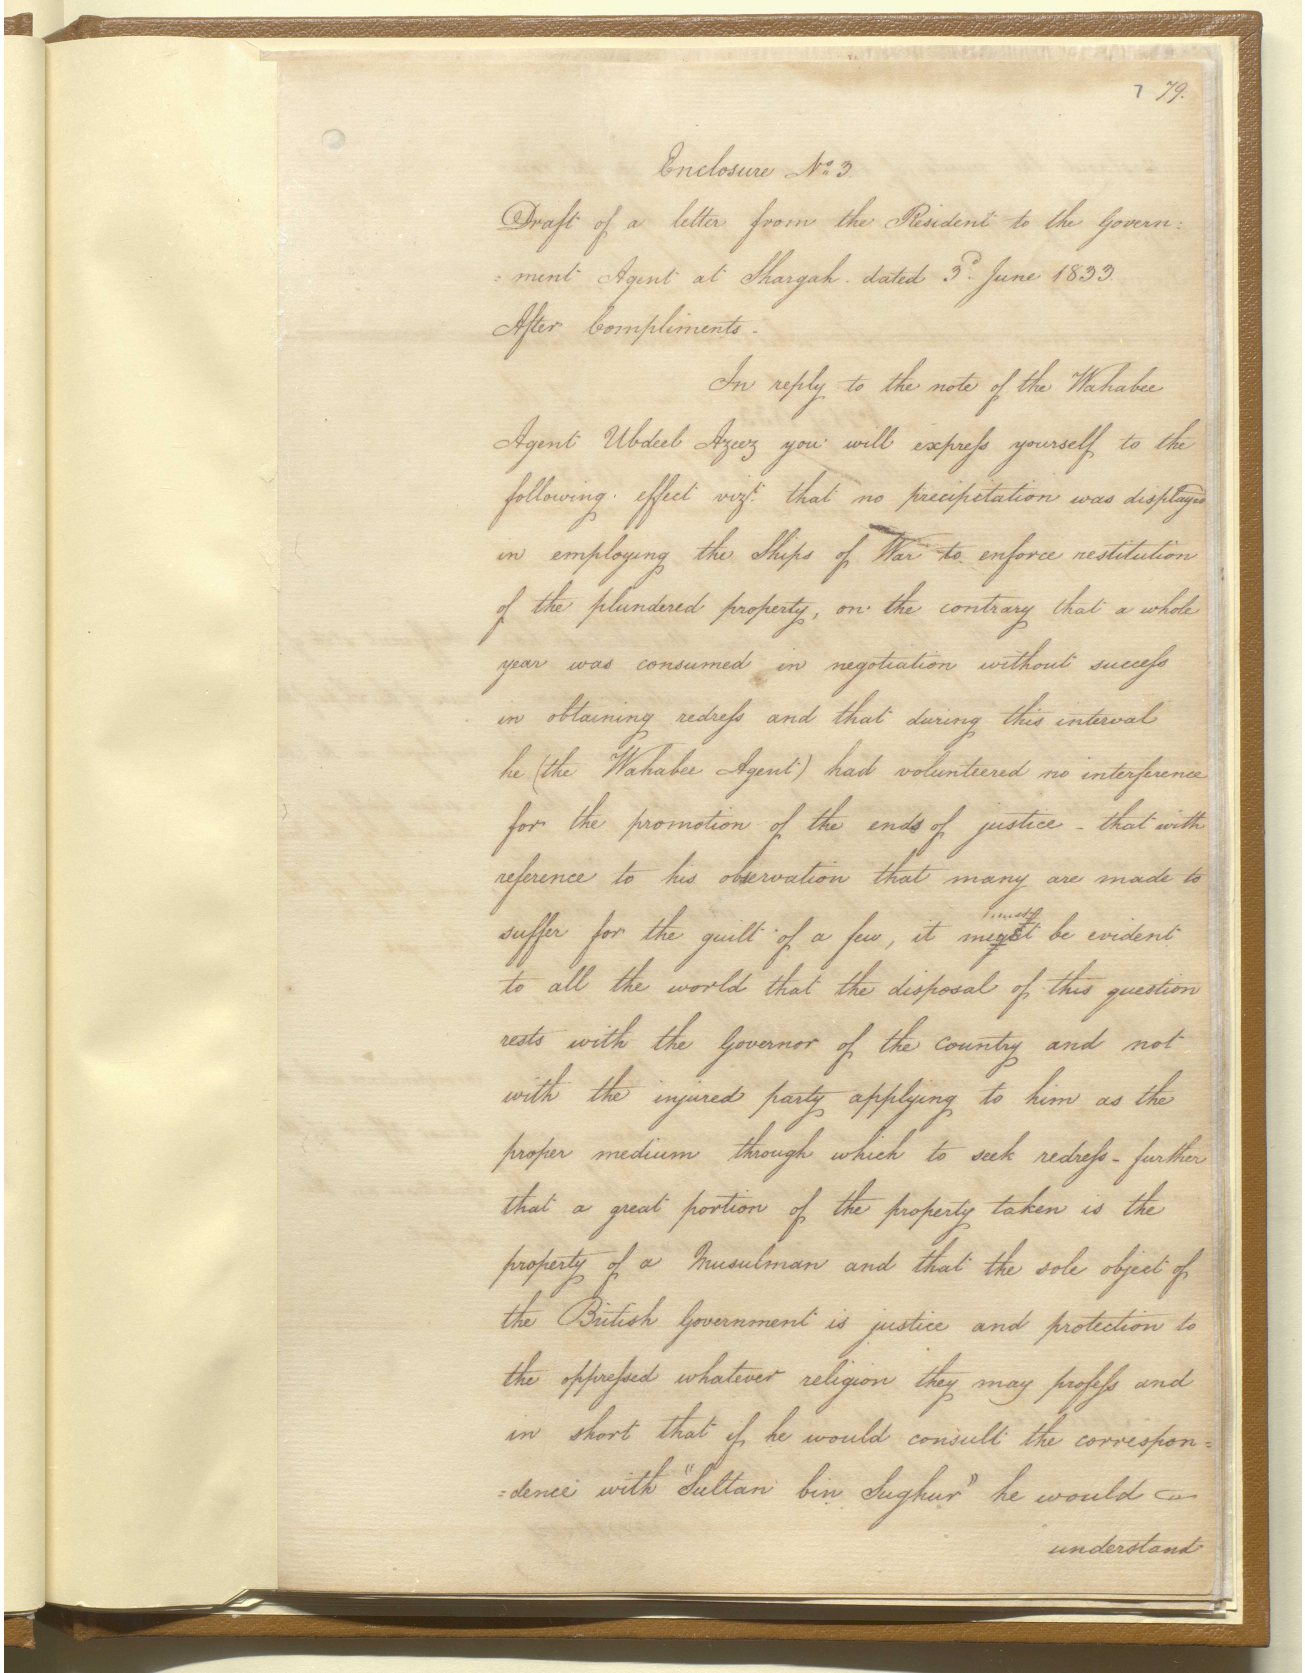 7 79.
Enclosure No. 3.
Draft of a letter from the Resident to the Govern:
=ment Agent at Shargah. dated 3d. June 1833.
After Compliments.
In reply to the note of the Wahabee
Agent Ubdeel Azeez you will express yourself to the
following effect vizt. that no precipitation was displayed
in employing the Ships of War to enforce restitution
of the plundered property, on the contrary that a whole
year was consumed in negotiation without success
in obtaining redress and that during this interval
he (the Wahabee Agent) had volunteered no interference
for the promotion of the ends of justice - that with
reference to his observation that many are made to
suffer for the guilt of a few, it must be evident
to all the world that the disposal of this question
rests with the Governor of the Country and not
with the injured party applying to him as the
proper medium through which to seek redress - further
that a great portion of the property taken is the
property of a Musulman and that the sole object of
the British Government is justice and protection to
the oppressed whatever religion they may profess and
in short that if he would consult the correspon=
=dence with "Sultan bin Sughur" he would
understand